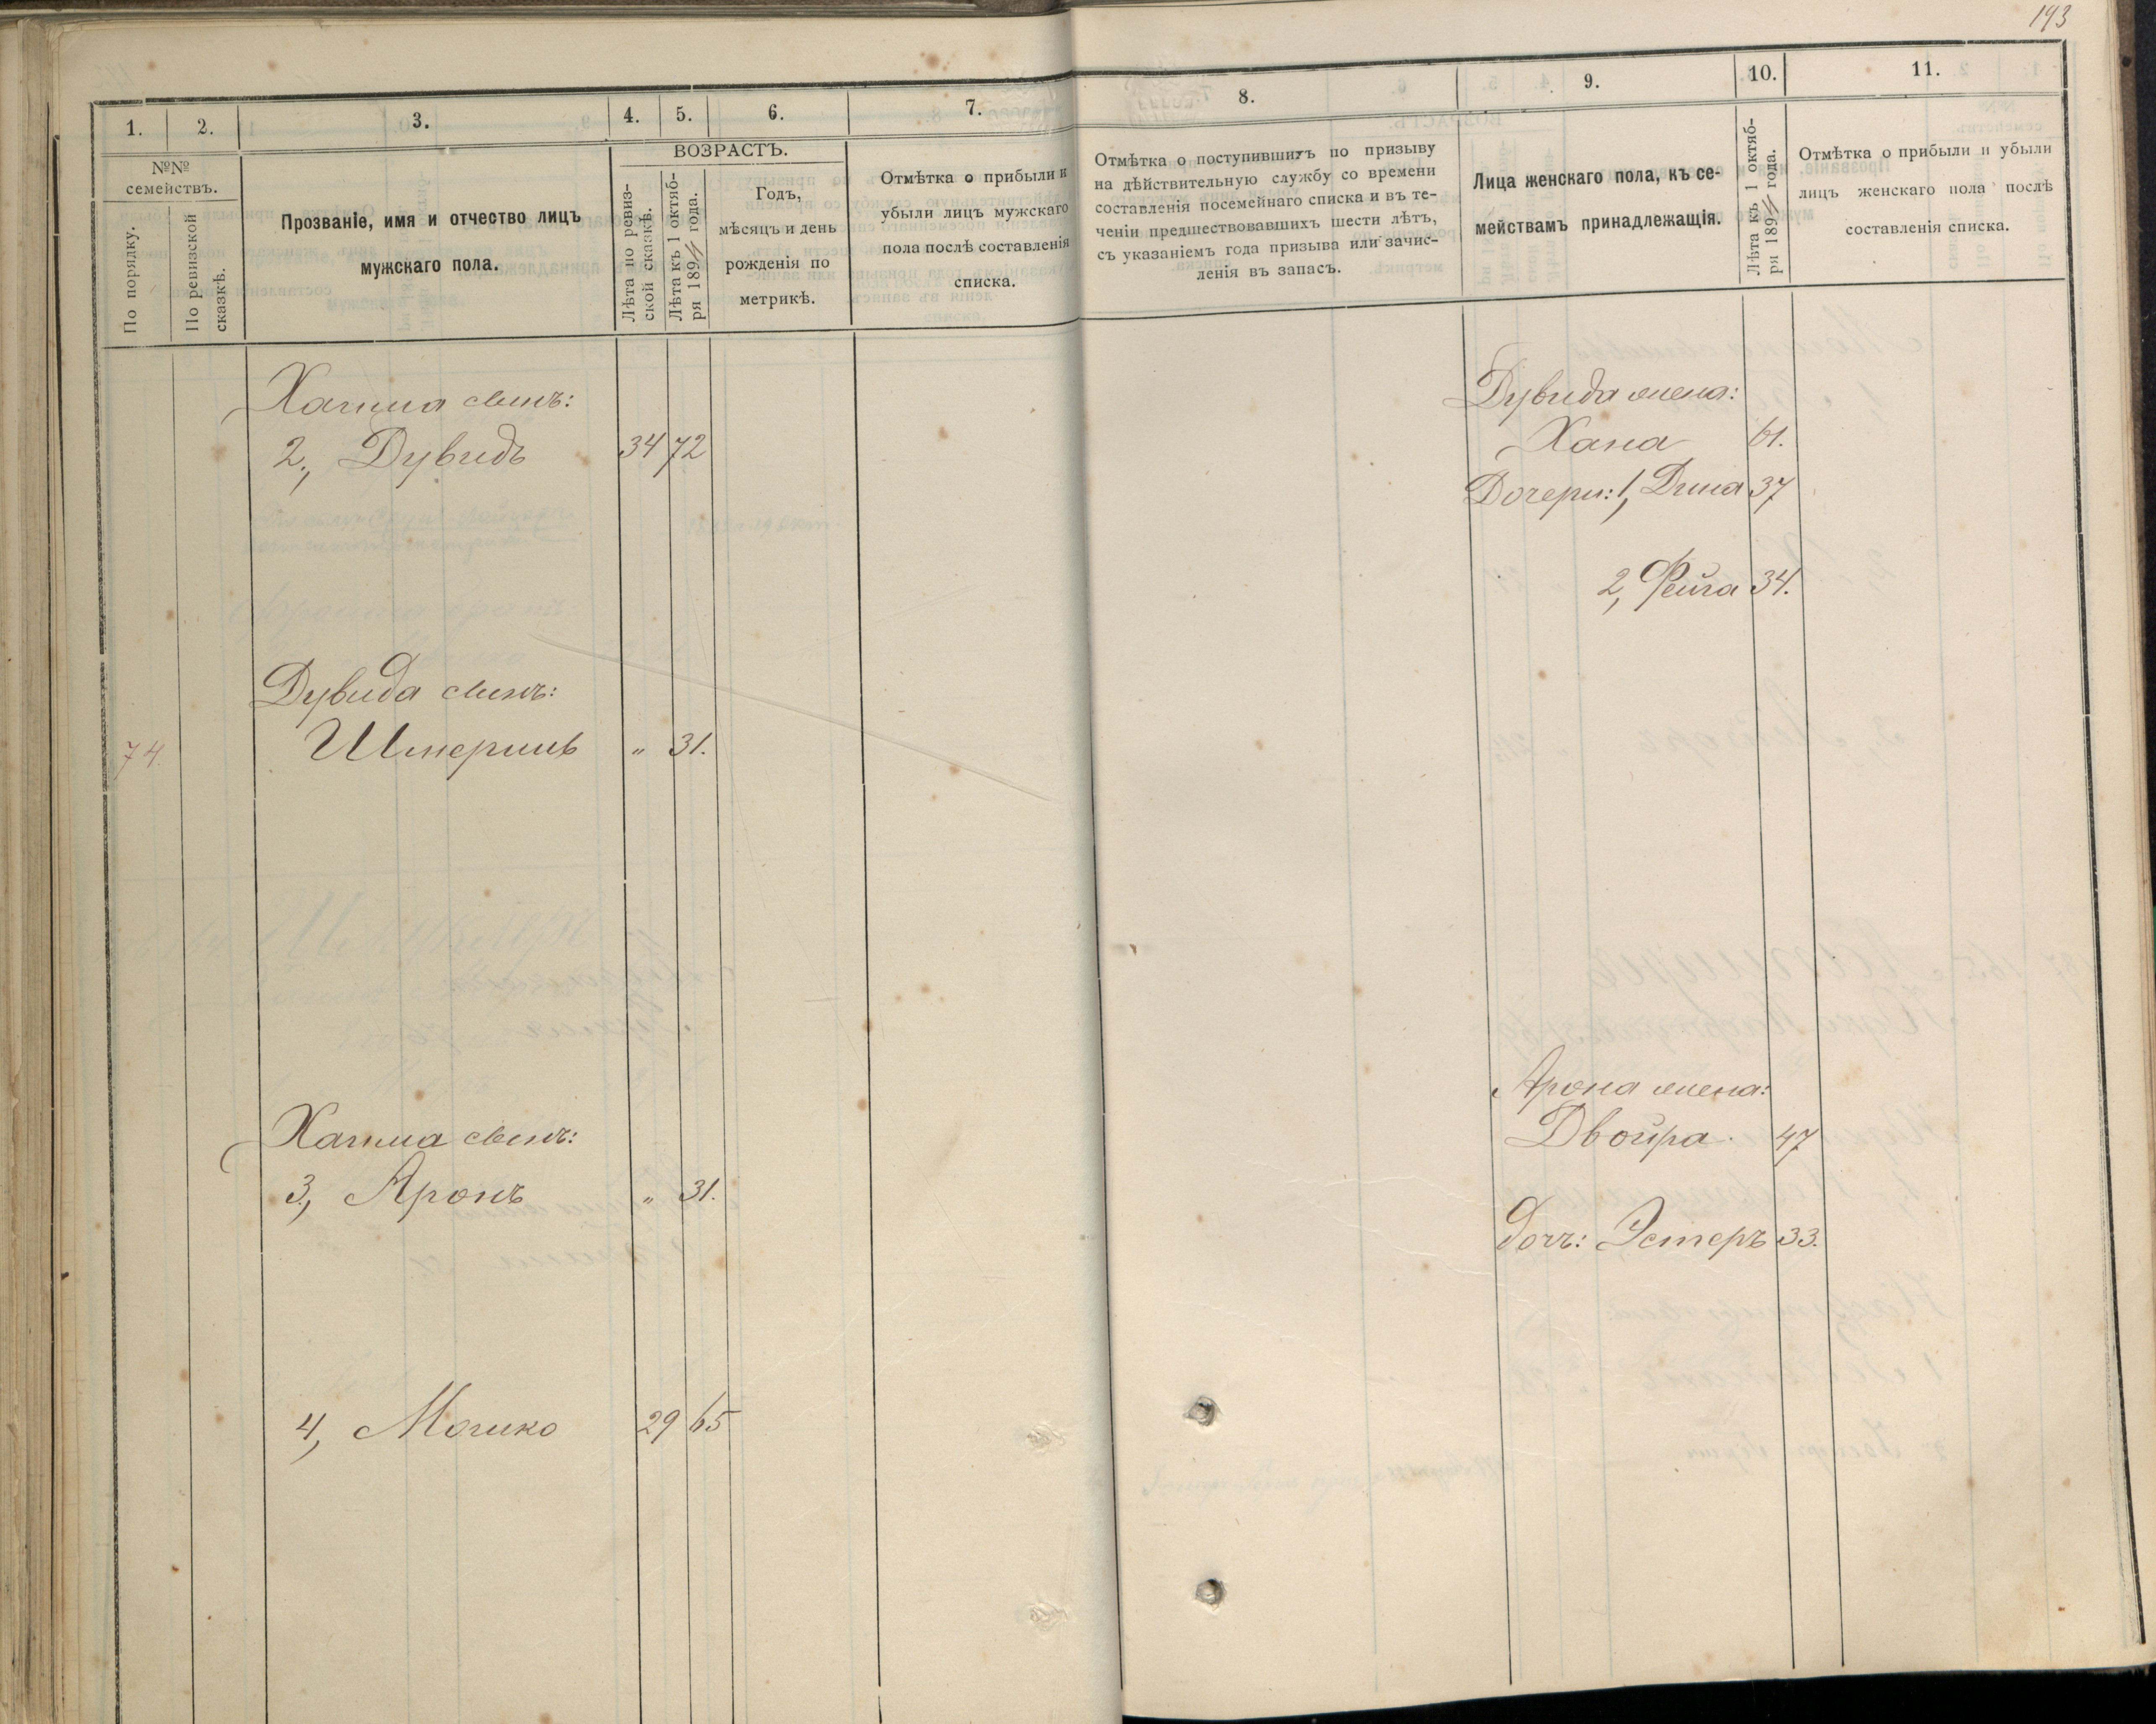 193
1.
2.
3.
4.
5.
6.
7.
8.
9.
10.
11.
№№ семействъ.
По порядку.
По ревизской сказкѣ.
Прозваніе, имя и отчество лицъ
мужскаго пола.
ВОЗРАСТЪ.
Лѣта по ревиз-
ской сказкѣ.
Лѣта къ 1 октяб-
ря 189 года.
Годъ,
мѣсяцъ и день
рожденія по
метрикѣ.
Отмѣтка о прибыли и
убыли лицъ мужскаго
пола послѣ составленія
списка.
Отмѣтка о поступившихъ по призыву
на дѣйствительную службу со времени
составленія посемейнаго списка и въ те-
ченіи предшествовавшихъ шести лѣтъ,
съ указаніемъ года призыва или зачис-
ленія въ запасъ.
Лица женскаго пола, къ се-
мействамъ принадлежащія.
Лѣта къ 1 октяб-
ря 189 года.
Отмѣтка о прибыли и убыли
лицъ женскаго пола послѣ
составленія списка.
Хаима сынъ:
2, Дувидъ 34 72
Дувида жена:
Хана 61.
Дочери: 1, Дина 37
2, Фейга 34.
Дувида сынъ:
74. Шмериль " 31.
Хаима сынъ:
3, Аронъ " 31.
Арона жена:
Двойра. 47
дочь: Эстеръ 33.
4, Мошко 29 65